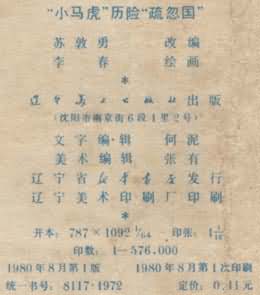 “小马虎”历险“疏忽国”
苏敦勇 改编
李春 绘画
*
辽宁美术出版社出版
(沈阳市南京街6段1里2号)
文字编辑 何泥
美术编辑 张有
辽宁省新华书店发行
辽宁美术印刷厂印刷
*
开本:787×1092 1/64 印张:1 1/16
印数:1—576,000
1980年8月第1版 1980年8月第1次印刷
统一书号:8117·1972 定价:0.11元